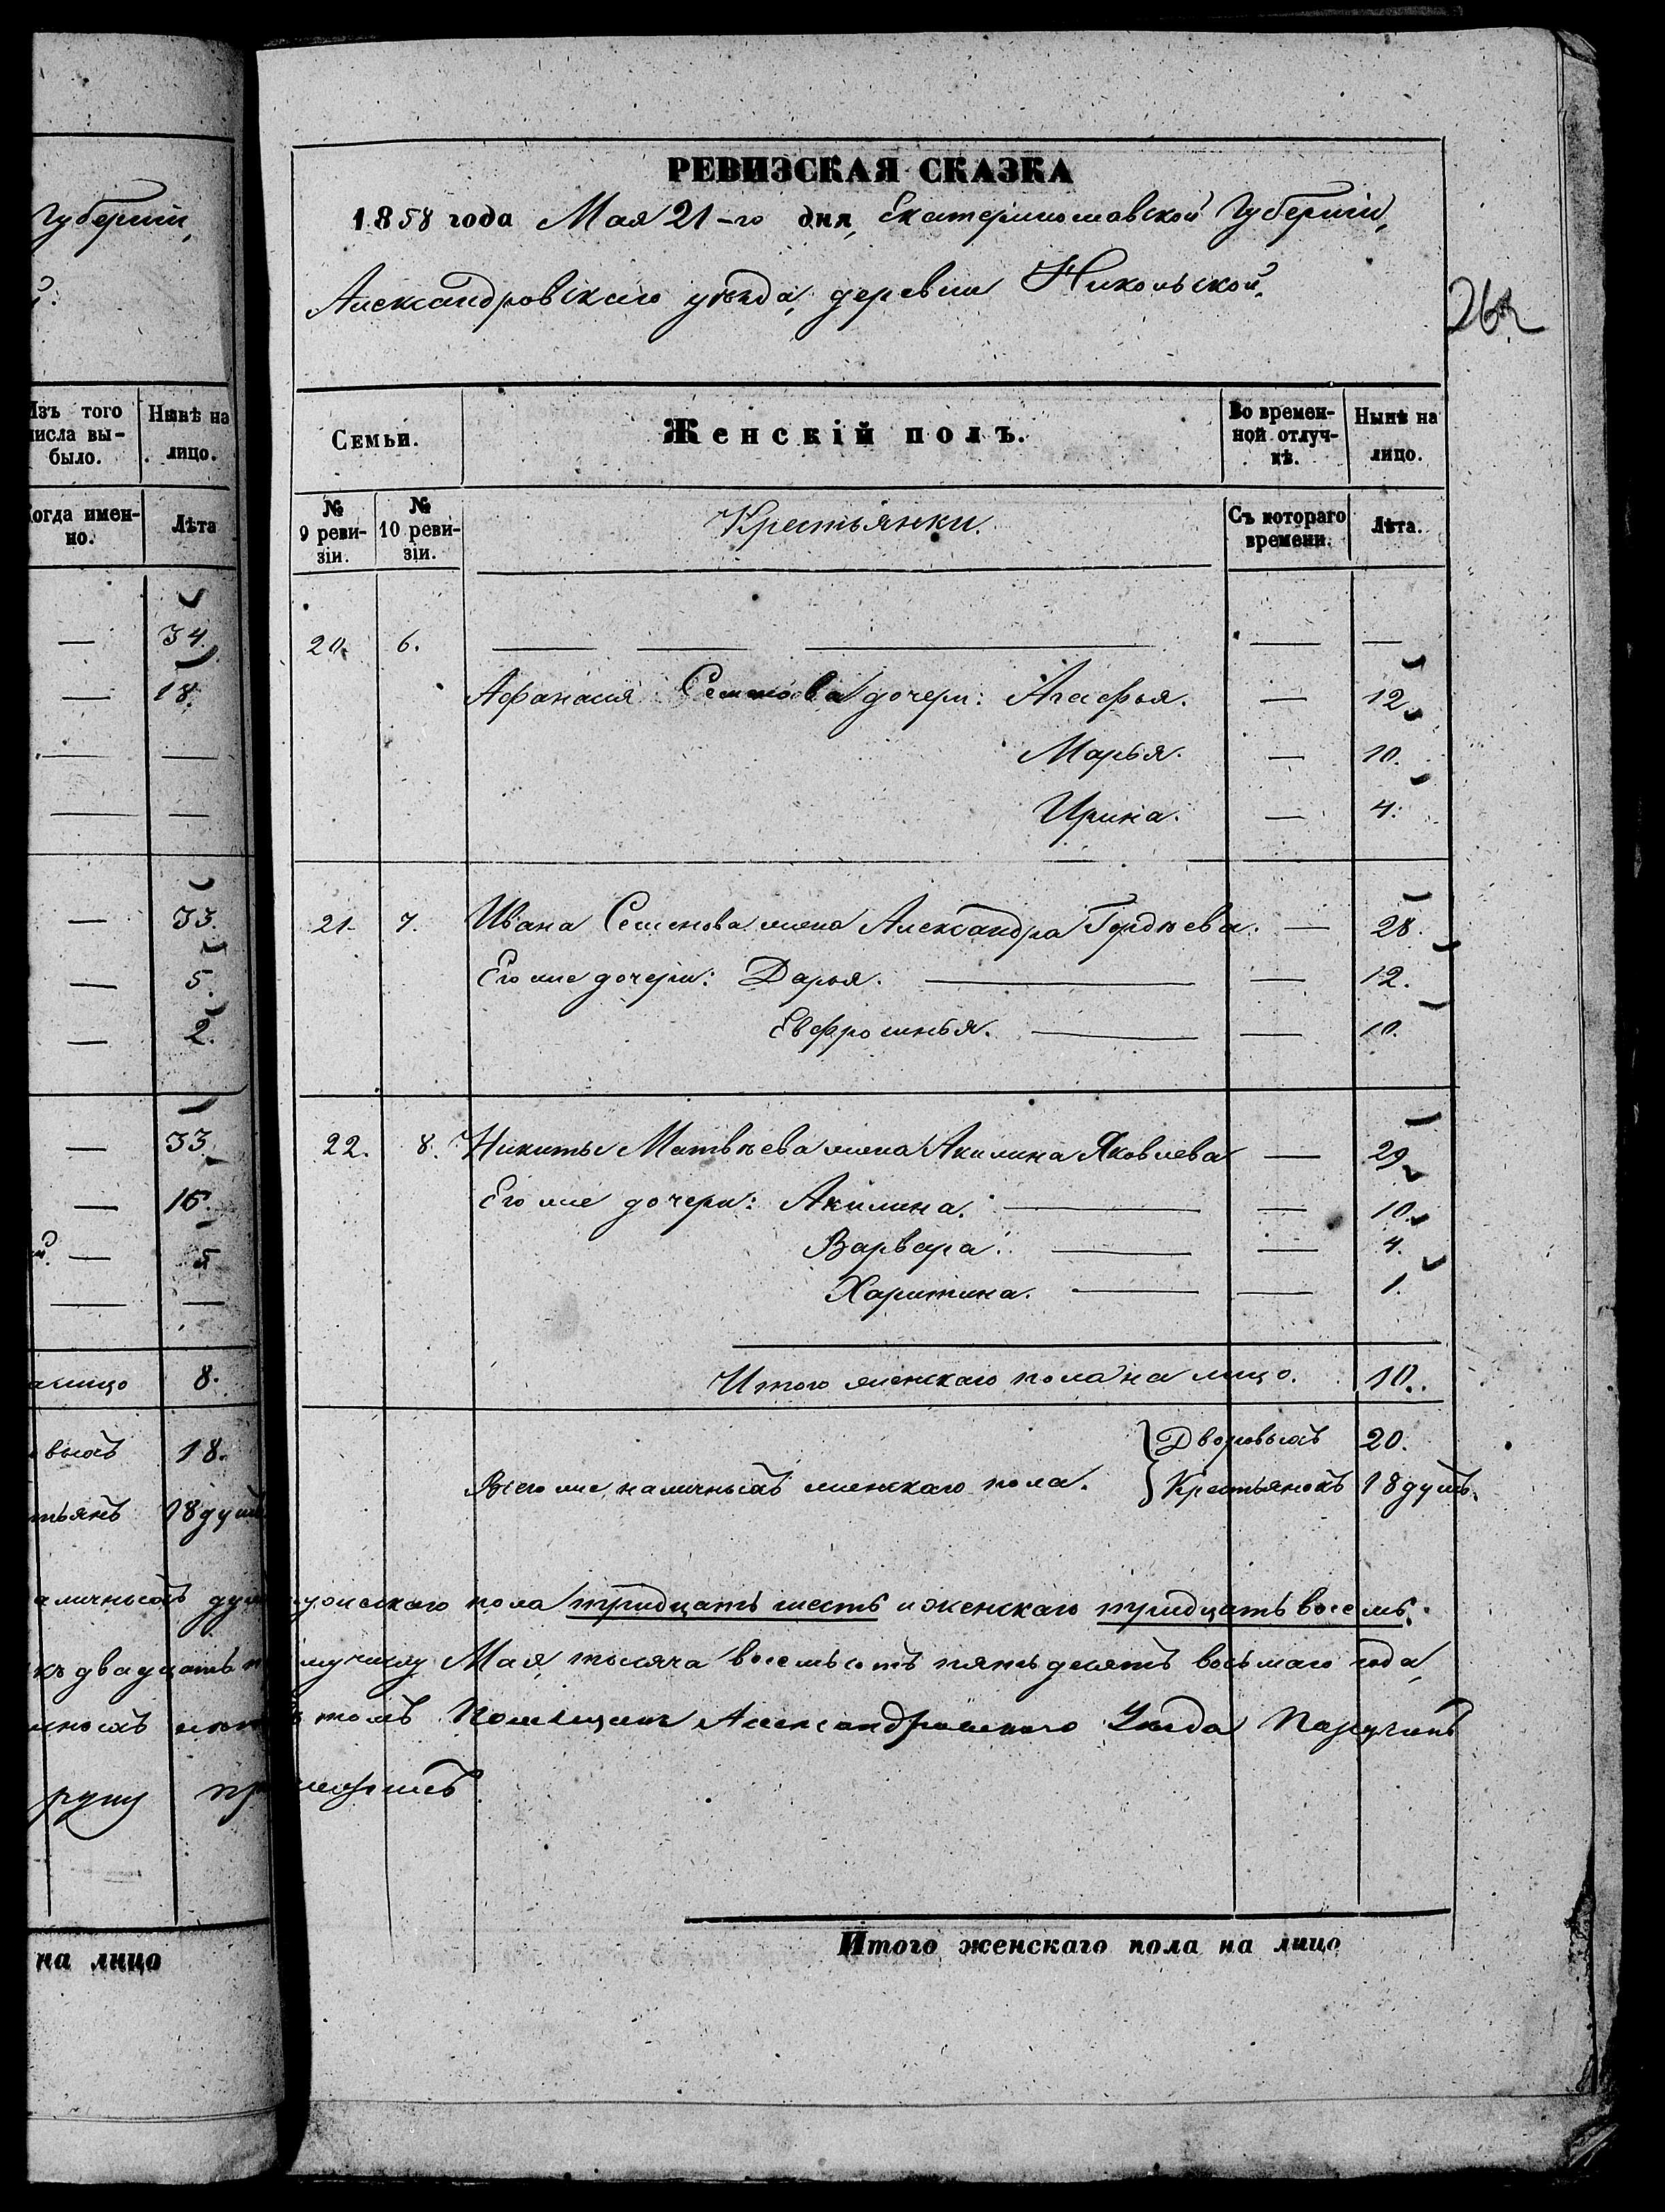 Губерніи,
й.
Изъ того числа вы- было.
Нынѣ на лицо.
Когда имен- но.
Лѣта
— 34.
— 18.
— —
— —
— 33.
— 5.
— 2.
— 33.
— 15.
— 5
— —
а лицо 8.
овыхъ 18.
тьянъ 18 душъ
на лицо
РЕВИЗСКАЯ СКАЗКА
1858 года Мая 21-го дня, Екатеринославской Губерніи,
Александровскаго уѣзда, деревни Никольской.
Семьи.
Женскій полъ.
Во времен- ной отлуч- кѣ.
Нынѣ на лицо.
№ 9 реви- зіи.
№ 10 реви- зіи.
Крестьянки.
Съ котораго времени.
Лѣта.
20. 6. — — — — —
Афанасія Семенова дочери: Агафья. — 12
Марья. — 10.
Ирина. — 4.
21. 7. Ивана Семенова жена Александра Гордѣева. — 28.
Его же дочери: Дарья. — — 12.
Евфросинья. — — 10.
22. 8. Никиты Матвѣева жена Акилина Яковлева — 29
Его же дочери: Акилина. — — 10.
Варвара. — — 4.
Харитина. — — 1.
Итого женскаго пола на лицо. 10.
Дворовыхъ 20.
Всего же наличныхъ женскаго пола. Крестьянокъ 18 душъ.
аличныхъ душъ мужескаго пола тридцать шесть и женскаго тридцать восемь.
къ двадцать му числу Мая, тысяча восемьсотъ пятьдесятъ восьмаго года,
томъ Помещикъ Александровскаго Уезда Поручикъ
руку приложилъ
Итого женскаго пола на лицо